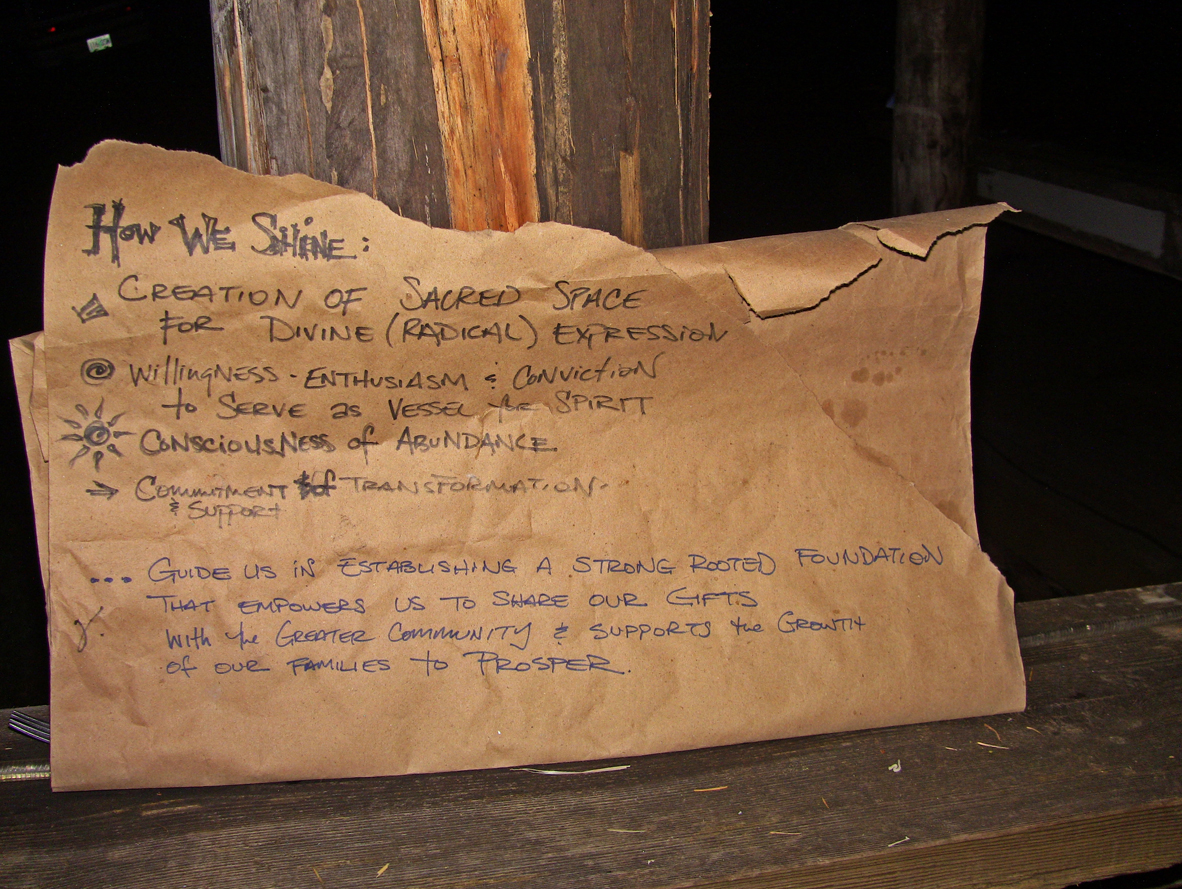 How We Shine:
Creation of Sacred Space
for Divine (Radical) Expression
Willingness - Enthusiasm & Conviction
to Serve as Vessel for Spirit
Consciousness of Abundance
Commitment Transformation.
& Support
... Guide us in establishing a strong rooted foundation
that empowers us to share our gifts
with the Greater Community & supports the Growth
of our families to Prosper.